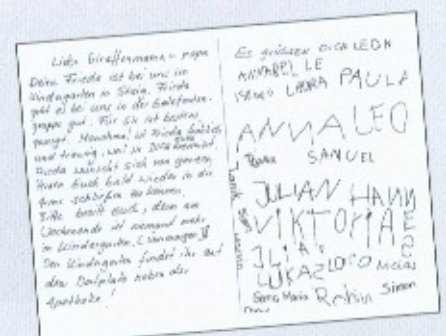 Liebe Giraffenmama, -papa
Deine Frieda ist bei uns im
Kindergarten in Stein. Frieda
geht es bei uns in der Elefanten-
gruppe gut. Für Sie ist bestens
gesorgt. Manchmal ist Frieda
und traurig, weil sie Dich vermisst.
Frieda wünscht sich von ganzem
Herzen Euch bald wieder in die
Arme schließen zu können.
Bitte beeilt euch, denn am
Wochenende ist niemand mehr
im Kindergarten
Den Kindergarten findet ihr auf
dem Dorfplatz neben der
Apotheke!
Es grüssen DICH LEON
ANNABEL LE
LAURA PAULA
ANNA LEO
SAMUEL
Jannik
JULIAN HANNES
VIKTORIA
ILIAS
LUKAS
Maria Robin Simon